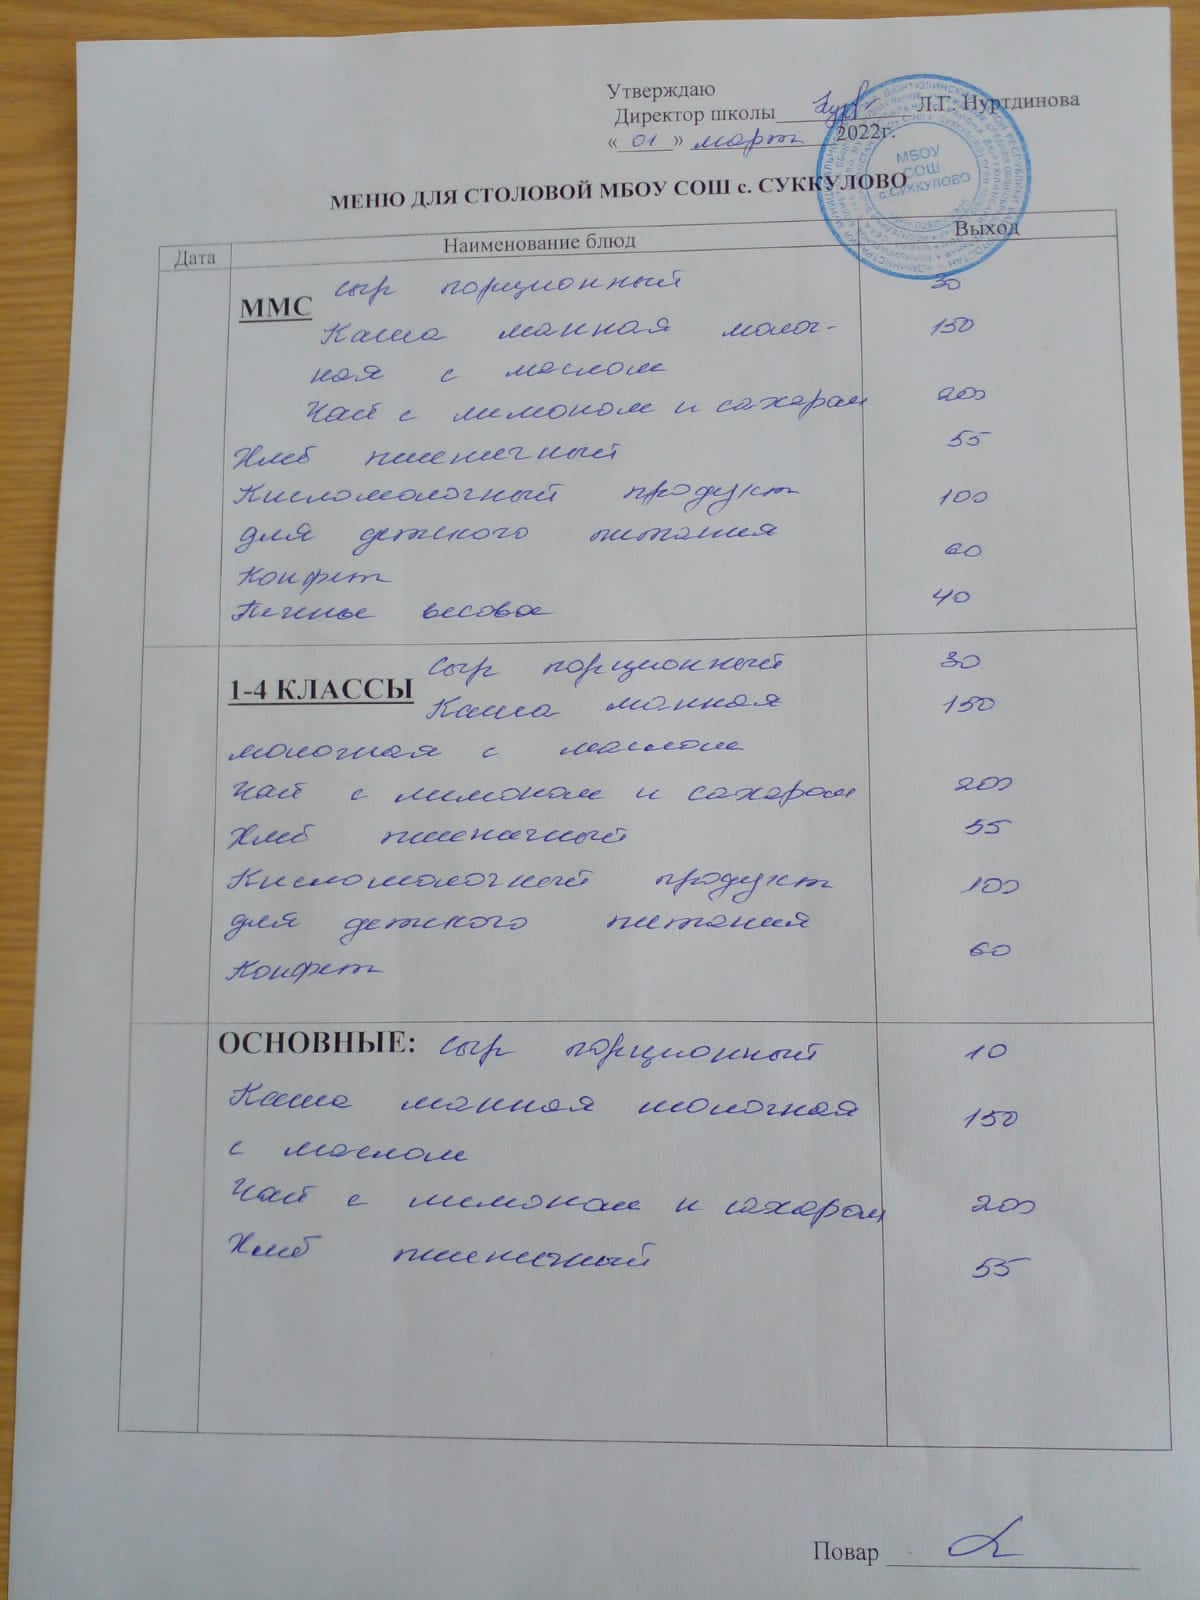 Утверждаю
Директор школы Л.Г. Нуртдинова
«01» март 2022г.
МБОУ
СОШ
с.СУККУЛОВО
МЕНЮ ДЛЯ СТОЛОВОЙ МБОУ СОШ с. СУККУЛОВО
Дата Наименование блюд Выход
ММС сыр порционный 30
Каша манная молоч- 150
ная с маслом
Чай с лимоном и сахаром 200
Хлеб пшеничный 55
Кисломолочный продукт 100
для детского питания
Конфет 60
Печенье весовое 40
1-4 КЛАССЫ сыр порционный 30
Каша манная 150
молочная с маслом
Чай с лимоном и сахаром 200
Хлеб пшеничный 55
Кисломолочный продукт 100
для детского питания
Конфет 60
ОСНОВНЫЕ: сыр порционный 10
Каша манная молочная 150
с маслом
Чай с лимоном и сахаром 200
Хлеб пшеничный 55
Повар